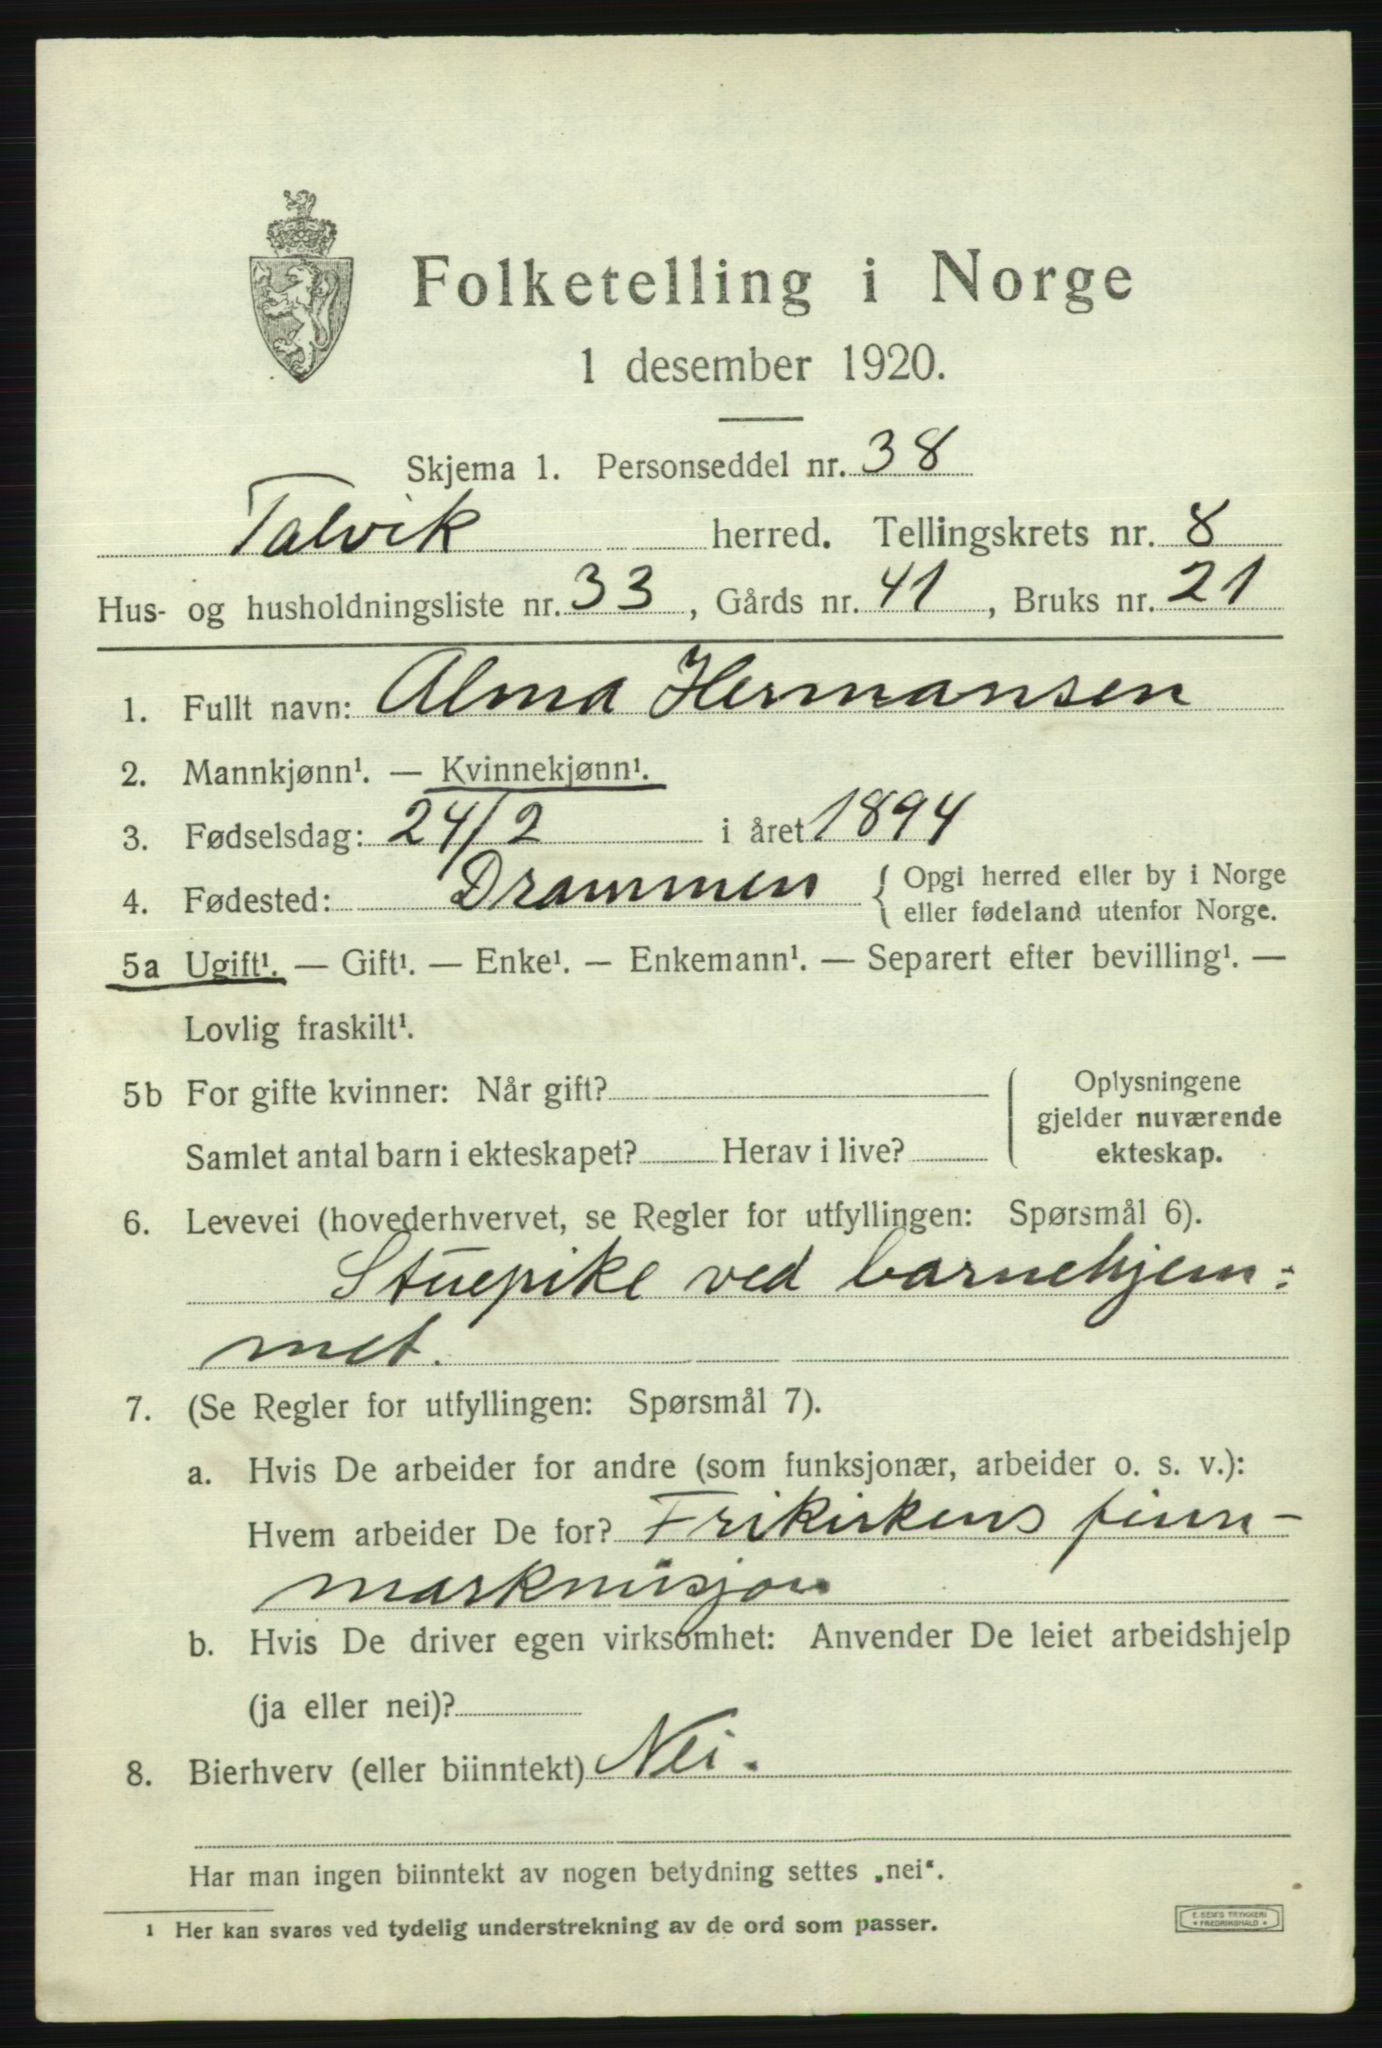 Folketelling i Norge
1 desember 1920.
Skjema 1. Personseddel nr. 38
Talvik herred. Tellingskrets nr. 8
Hus- og husholdningsliste nr. 33, Gårds nr. 41, Bruks nr. 21
1. Fullt navn: Alma Hermansen
2. Mannkjønn¹. — Kvinnekjønn¹.
3. Fødselsdag: 24/2 i året 1894
4. Fødested: Drammen { Opgi herred eller by i Norge
eller fødeland utenfor Norge.
5a Ugift¹. — Gift¹. — Enke¹. — Enkemann¹. — Separert efter bevilling¹. —
Lovlig fraskilt¹.
5b For gifte kvinner: Når gift?
Samlet antal barn i ekteskapet? Herav i live?
Oplysningene
gjelder nuværende
ekteskap.
6. Levevei (hovederhvervet, se Regler for utfyllingen: Spørsmål 6).
Stuepike ved barnehjem-
met.
7. (Se Regler for utfyllingen: Spørsmål 7).
a. Hvis De arbeider for andre (som funksjonær, arbeider o. s. v.):
Hvem arbeider De for? Frikirkens finn-
markmisjon
b. Hvis De driver egen virksomhet: Anvender De leiet arbeidshjelp
(ja eller nei)?
8. Bierhverv (eller biinntekt) Nei.
Har man ingen biinntekt av nogen betydning settes „nei“.
1 Her kan svares ved tydelig understrekning av de ord som passer.
E. SEM'S TRYKKERI
FREDRIKSHALD